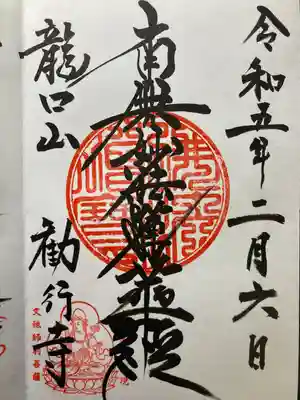 令和五年二月六日
南無妙法蓮華經
龍口山 勧行寺
文殊師利菩薩